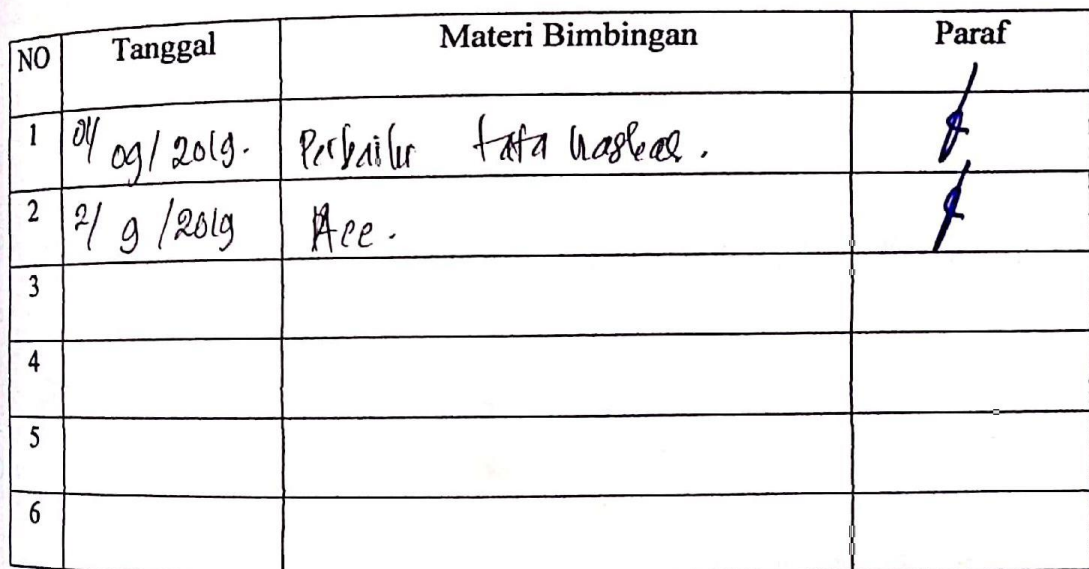 NO Tanggal Materi Bimbingan Paraf
1 04/09/2019. Perbaiki tata
2 2/9/2019 Acc.
3
4
5
6